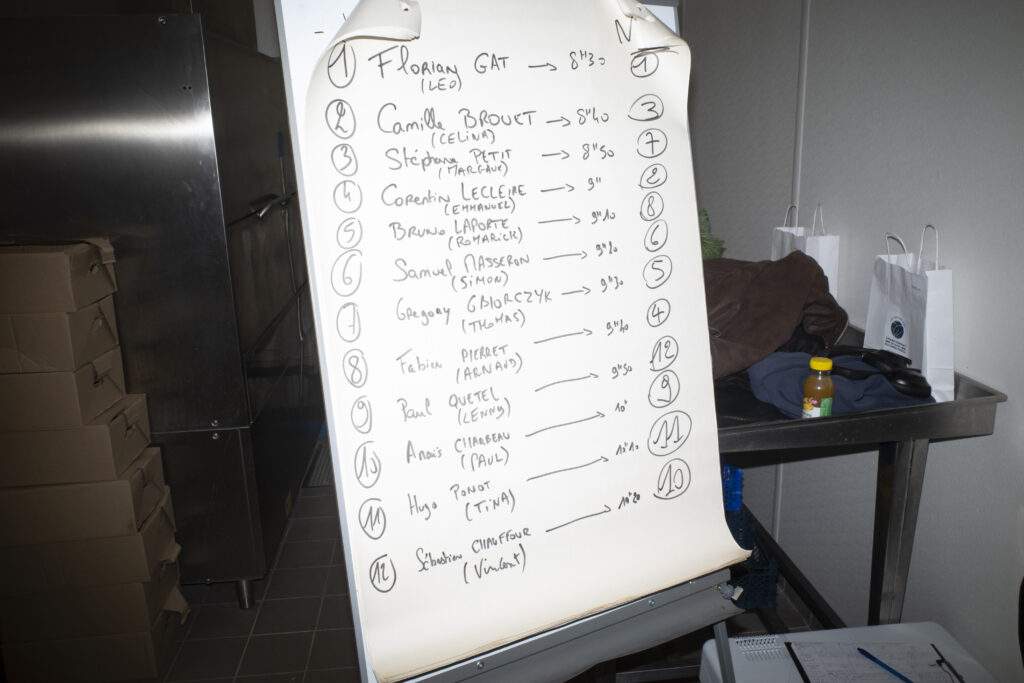 N
1 Florian GAT → 8H30 1
(LEO)
2 Camille BROUET → 8H40 3
(CELINA)
3 Stéphane PETIT → 8H50 7
(MARGAUX)
4 Corentin LECLEIRE → 9H 2
(EMMANUEL)
5 Bruno LAPORTE → 9H10 8
(ROMARICK)
6 Samuel MASSERON → 9H20 6
(SIMON)
7 Gregory GBIORCZYK → 9H30 5
(THOMAS)
8 Fabien PIERRET → 9H40 4
(ARNAUD)
9 Paul QUETEL → 9H50 12
(LENNY)
10 Anaïs CHABEAU → 10H 9
(PAUL)
11 Hugo PONOT → 10H10 11
(TINA)
12 Sébastien CHAUFFOUR → 10H20 10
(Vincent)